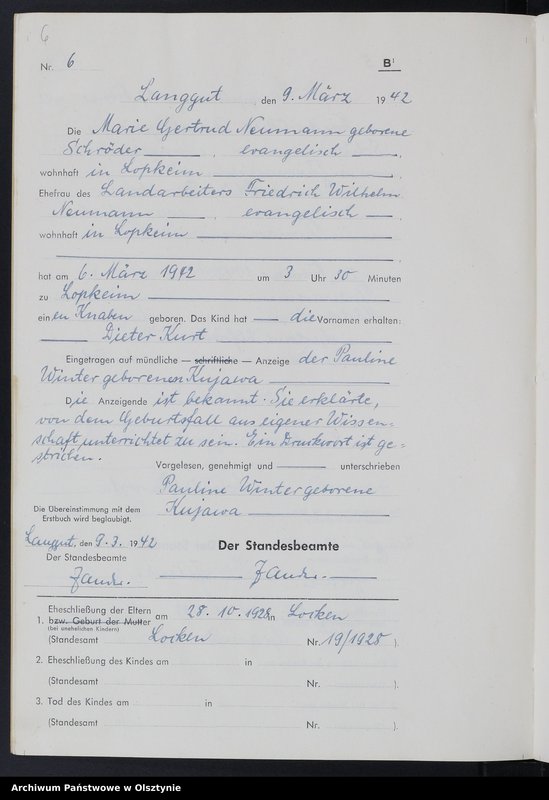 6
Nr. 6
B¹
Langgut, den 9. März 1942
Die Marie Gertrud Neumann geborene
Schröder, evangelisch
wohnhaft in Lopkeim
Ehefrau des Landarbeiters Friedrich Wilhelm
Neumann, evangelisch
wohnhaft in Lopkeim
hat am 6. März 1942 um 3 Uhr 30 Minuten
zu Lopkeim
einen Knaben geboren. Das Kind hat — die Vornamen erhalten:
Dieter Kurt
Eingetragen auf mündliche — schriftliche — Anzeige der Pauline
Winter geborenen Kujawa
Die Anzeigende ist bekannt. Sie erklärte,
von dem Geburtsfall aus eigener Wissen-
schaft unterrichtet zu sein. Ein Druckwort ist ge-
strichen.
Vorgelesen, genehmigt und — unterschrieben
Pauline Winter geborene
Kujawa
Die Übereinstimmung mit dem
Erstbuch wird beglaubigt.
Langgut, den 9.3.1942
Der Standesbeamte
Der Standesbeamte
Eheschließung der Eltern
1. bzw. Geburt der Mutter am 28.10.1928 in Locken
(bei unehelichen Kindern)
(Standesamt Locken Nr. 19/1928).
2. Eheschließung des Kindes am in
(Standesamt Nr. ).
3. Tod des Kindes am in
(Standesamt Nr. ).
Archiwum Państwowe w Olsztynie